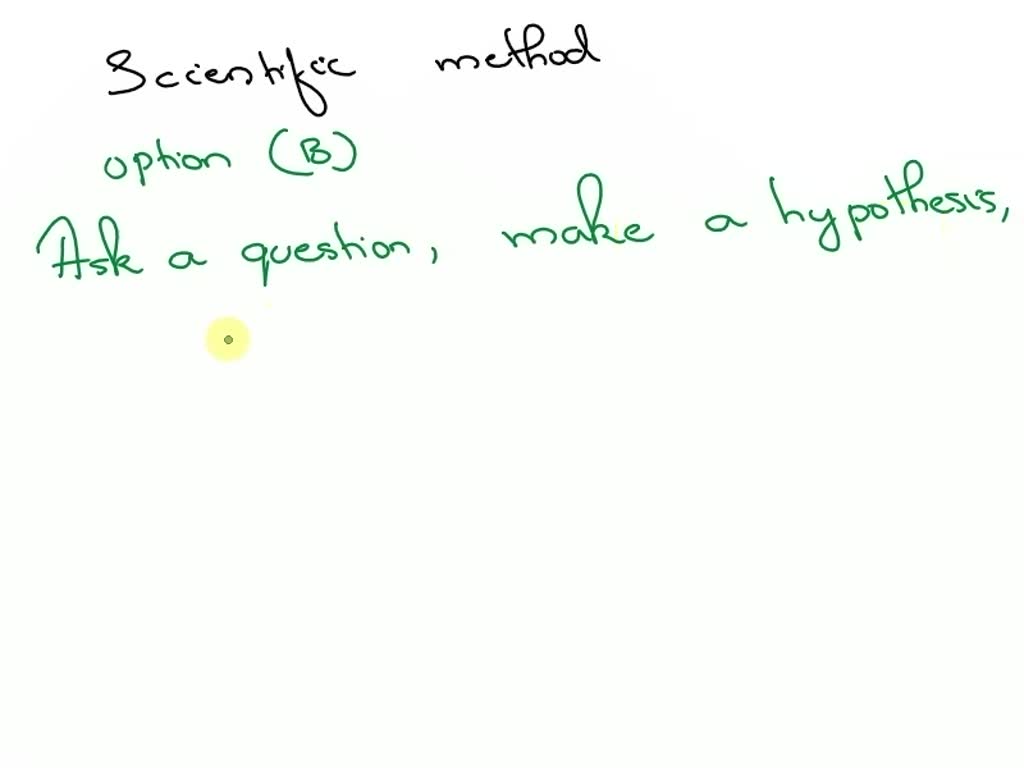 Scientific method
option (B)
Ask a question, make a hypothesis,